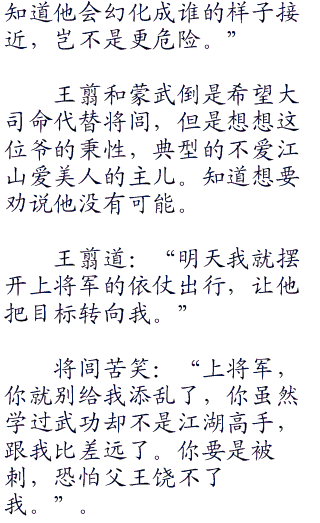 知道他会幻化成谁的样子接
近，岂不是更危险。”
王翦和蒙武倒是希望大
司命代替将闾，但是想想这
位爷的秉性，典型的不爱江
山爱美人的主儿。知道想要
劝说他没有可能。
王翦道：“明天我就摆
开上将军的依仗出行，让他
把目标转向我。”
将闾苦笑：“上将军，
你就别给我添乱了，你虽然
学过武功却不是江湖高手，
跟我比差远了。你要是被
刺，恐怕父王饶不了
我。”。